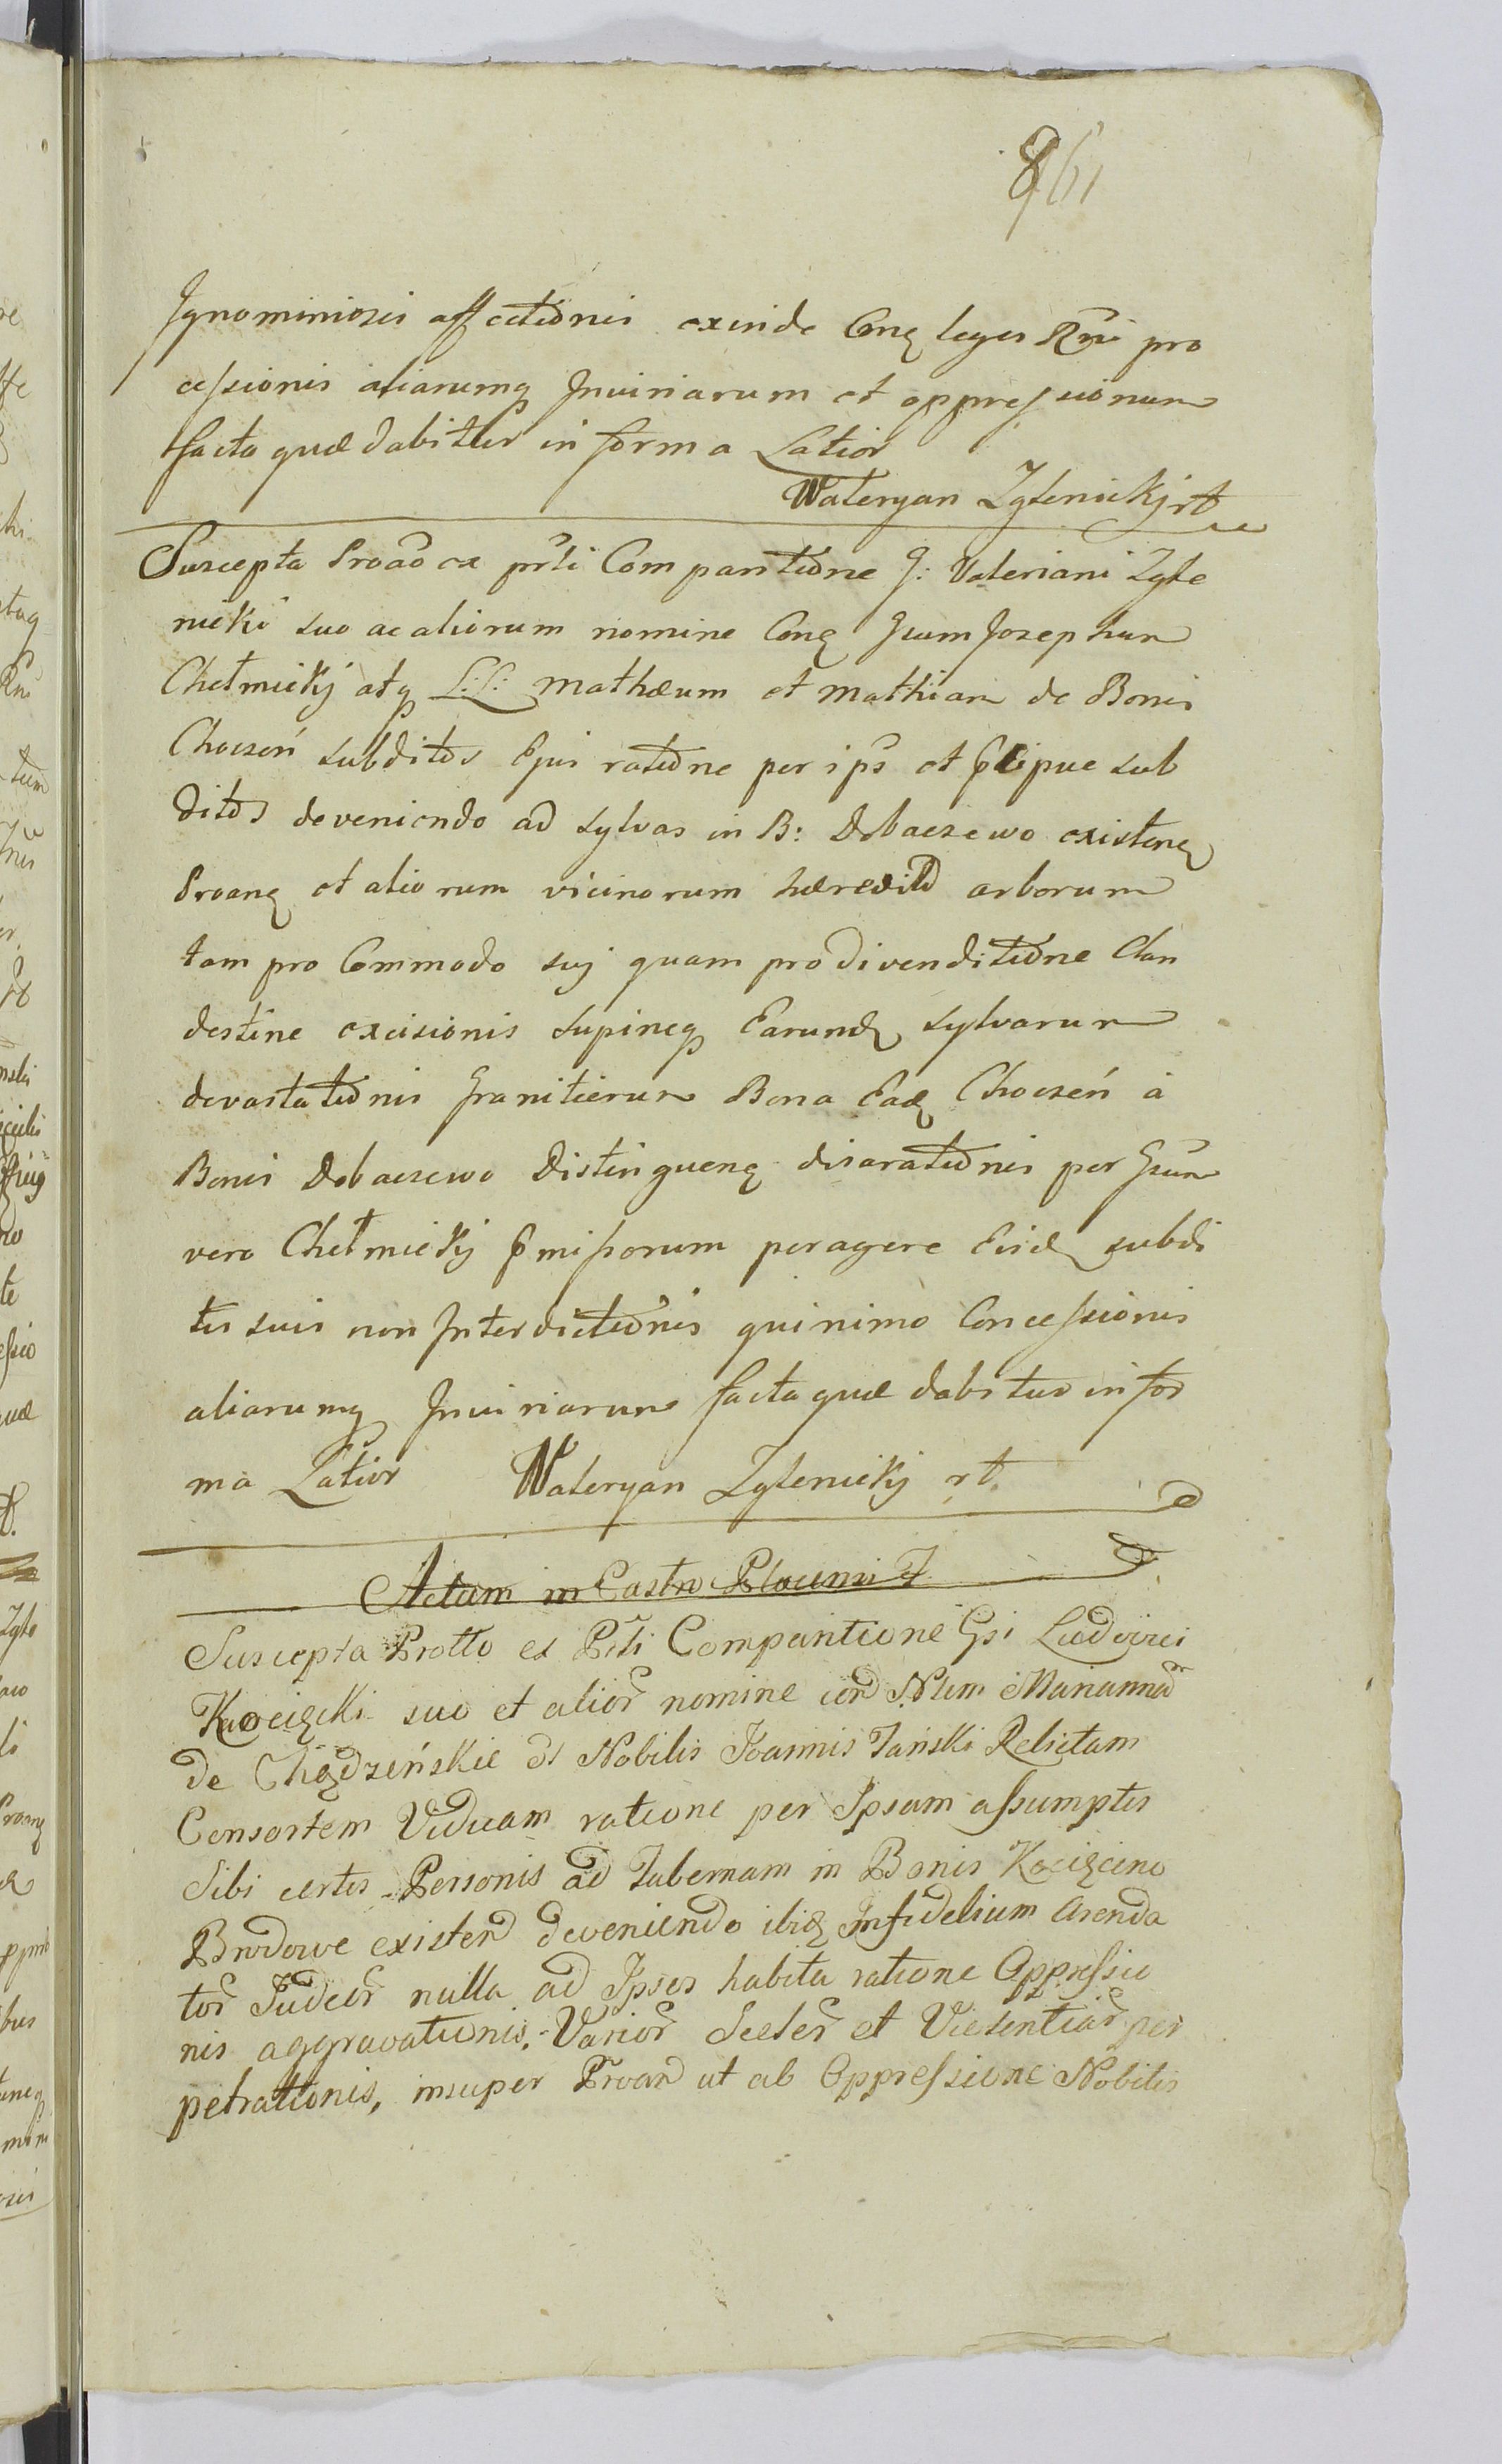 861
Ignominiosis affectionis exinde Conq leges Rni pro
cessionis aliarumq Iniuriarum et oppressionum
facta quæ dabitur in forma Latior
Waleryan Zglenickj rt
Suscepta Proāo ex prsti Comparitione G: Valeriani Zgle
nicki suo ac aliorum nomine Conq Gsum Josephum
Chełmickj atq L:L: Mathæum et Mathiam de Bonis
Choczeń subditos Ejus ratione per ips et pcipue sub
ditos deveniendo ad sylvas in B: Dobaczewo existenq
Proanq et aliorum vicinorum hæredit arborum
tam pro Commodo suj quam pro divenditione Clan
destine excisionis supineq Earundq sylvarum
devastationis Granitierum Bona Eadq Choczeń a
Bonis Dobaczewo Distinguenq disarationis per Gsum
vero Chełmickj pmissorum peragere Eisdq subdi
tis suis non Interdictionis quinimo Concessionis
aliarumq Iniuriarum facta quæ dabitur in for
ma Latior Waleryan Zglenickj rt
Actum in Castro Plocensi F
Suscepta Protto ex Prsti Comparitione Gsi Ludovici
Kocięcki suo et alior nomine con Nlem Mariannā
de Chądzeńskie ol Nobilis Joannis Tański Relictam
Consortem Viduam ratione per Ipsam assumptis
Sibi certis Personis ad Tabernam in Bonis Kocięcino
Brodowe existen deveniendo ibiq Infidelium Arenda
tor Judeor nulla ad Ipsos habita ratione Oppressio
nis aggravationis, Varior Sceler et Violentiar per
petrationis, insuper Proan ut ab Oppressione Nobilis